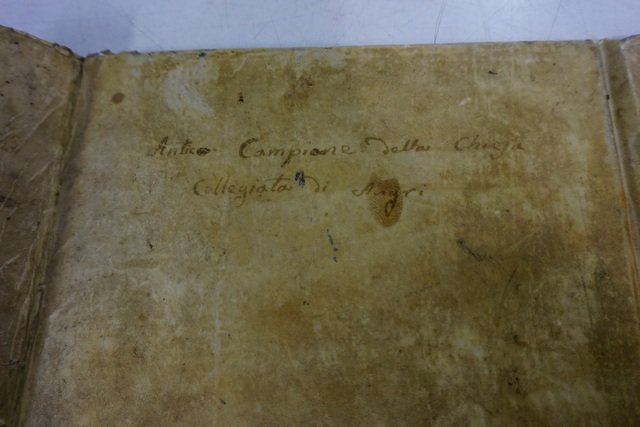 Antico Campione della Chiesa
Collegiata di Angri